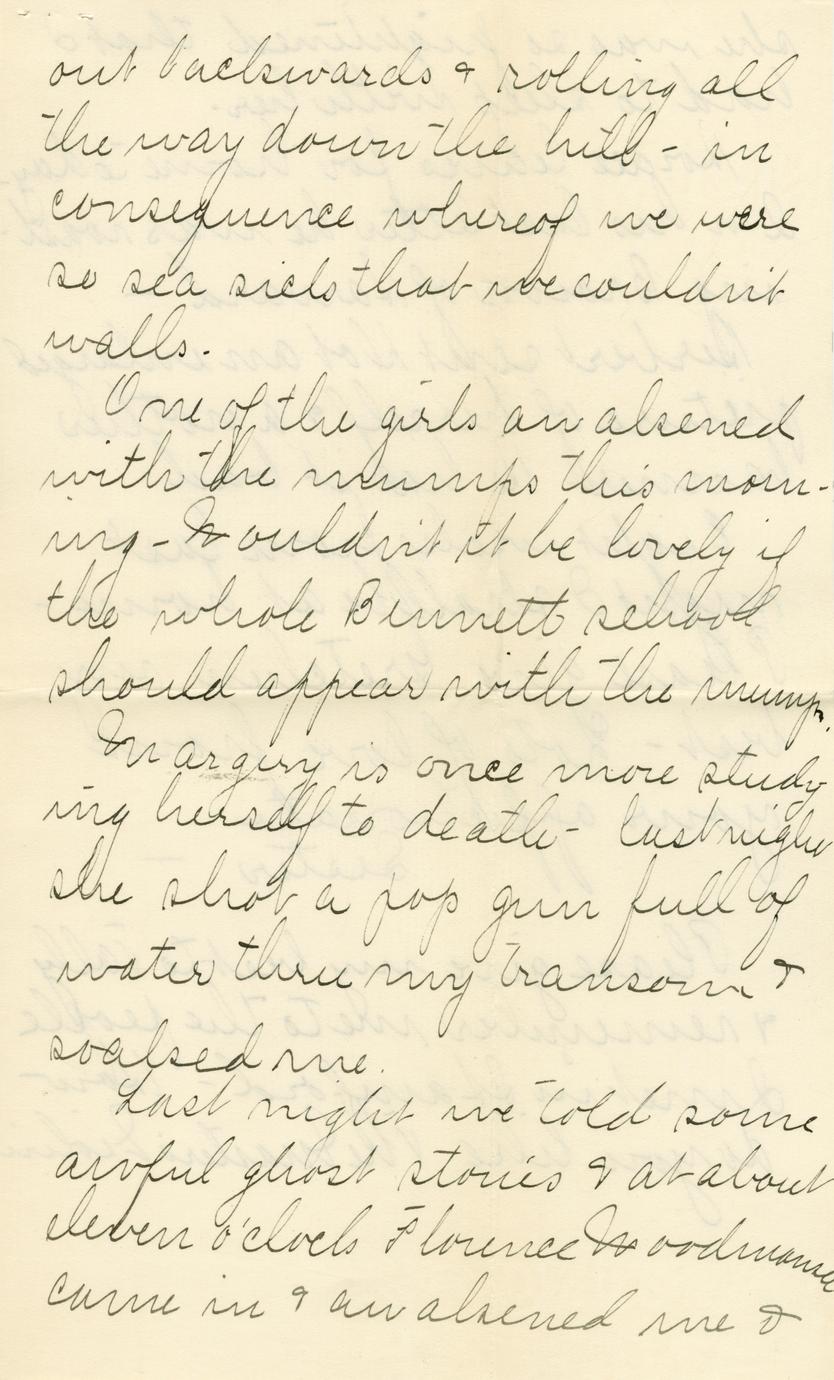 out backwards & rolling all
the way down the hill - in
consequence whereof we were
so sea sick that we couldn't
walk.
One of the girls awakened
with the mumps this morn-
ing - Wouldn't it be lovely if
the whole Bennett school
should appear with the mumps.
Margery is once more study
ing herself to death - last night
she shot a pop gun full of
water thru my transom &
soaked me.
Last night we told some
awful ghost stories & at about
eleven o'clock Florence Woodmanse
came in & awakened me &